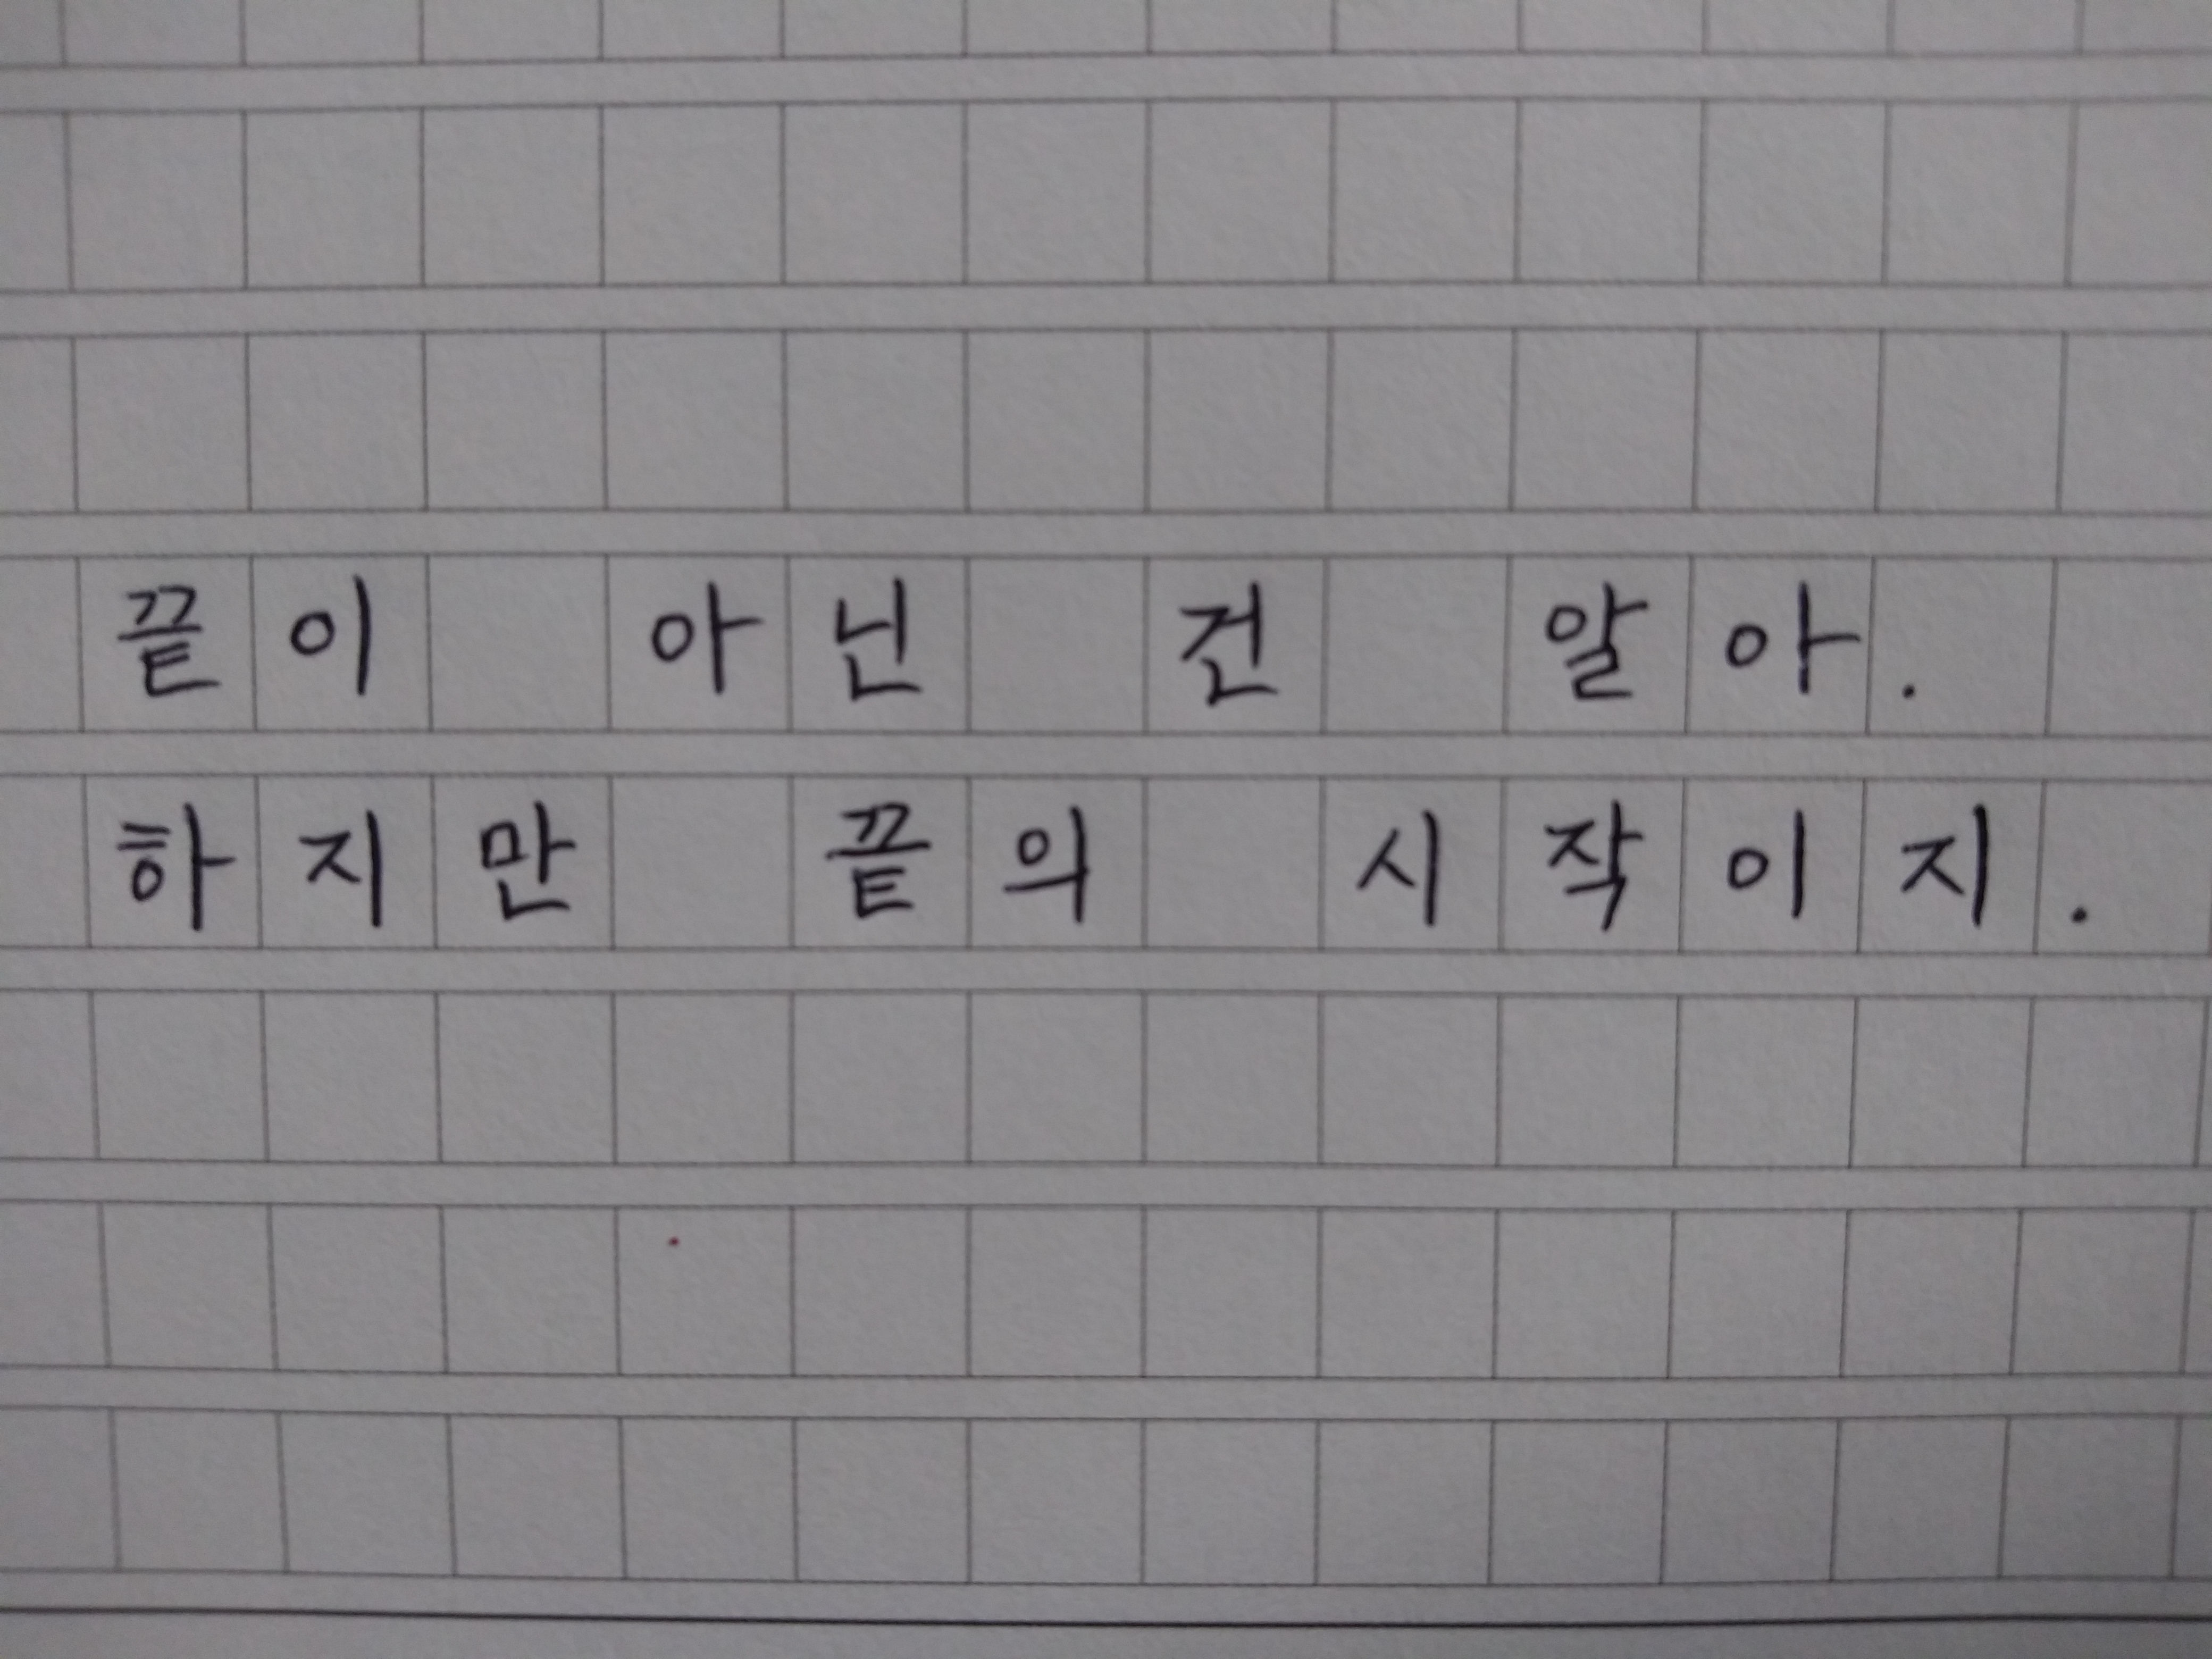 끝이 아닌 건 알아.
하지만 끝의 시작이지.